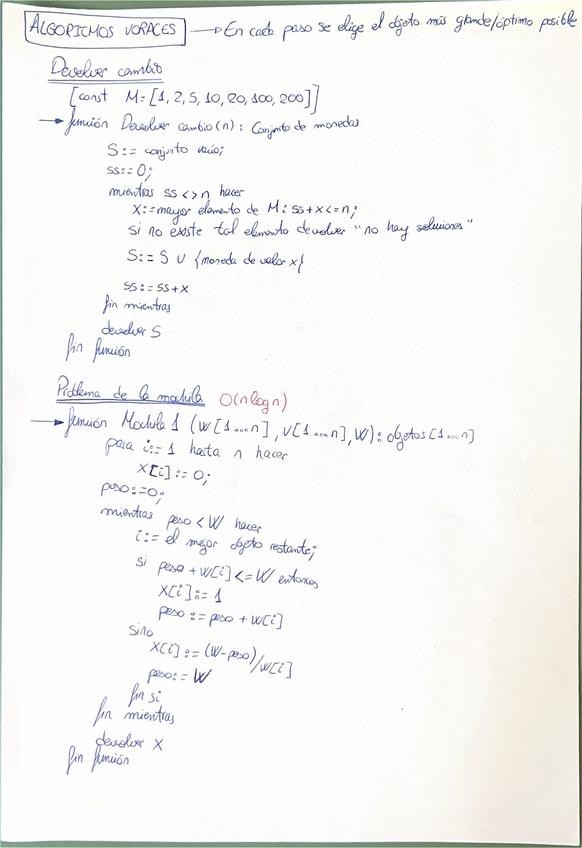 ALGORITMOS VORACES → En cada paso se elige el objeto más grande/óptimo posible
Devolver cambio
[const M=[1, 2, 5, 10, 20, 100, 200]]
→ función Devolver cambio(n): Conjunto de monedas
S:= conjunto vacío;
ss:=0;
mientras ss<>n hacer
x:=mayor elemento de M: ss+x<=n;
si no existe tal elemento devolver "no hay soluciones"
S:= S ∪ {moneda de valor x}
ss:=ss+x
fin mientras
devolver S
fin función
Problema de la mochila O(n log n)
→ función Mochila 1 (w[1...n], v[1...n], W): objetos[1...n]
para i:=1 hasta n hacer
x[i]:=0;
peso:=0;
mientras peso<W hacer
i:= el mejor objeto restante;
si peso+w[i]<=W entonces
x[i]:=1
peso:=peso+w[i]
sino
x[i]:=(W-peso)/w[i]
peso:=W
fin si
fin mientras
devolver x
fin función